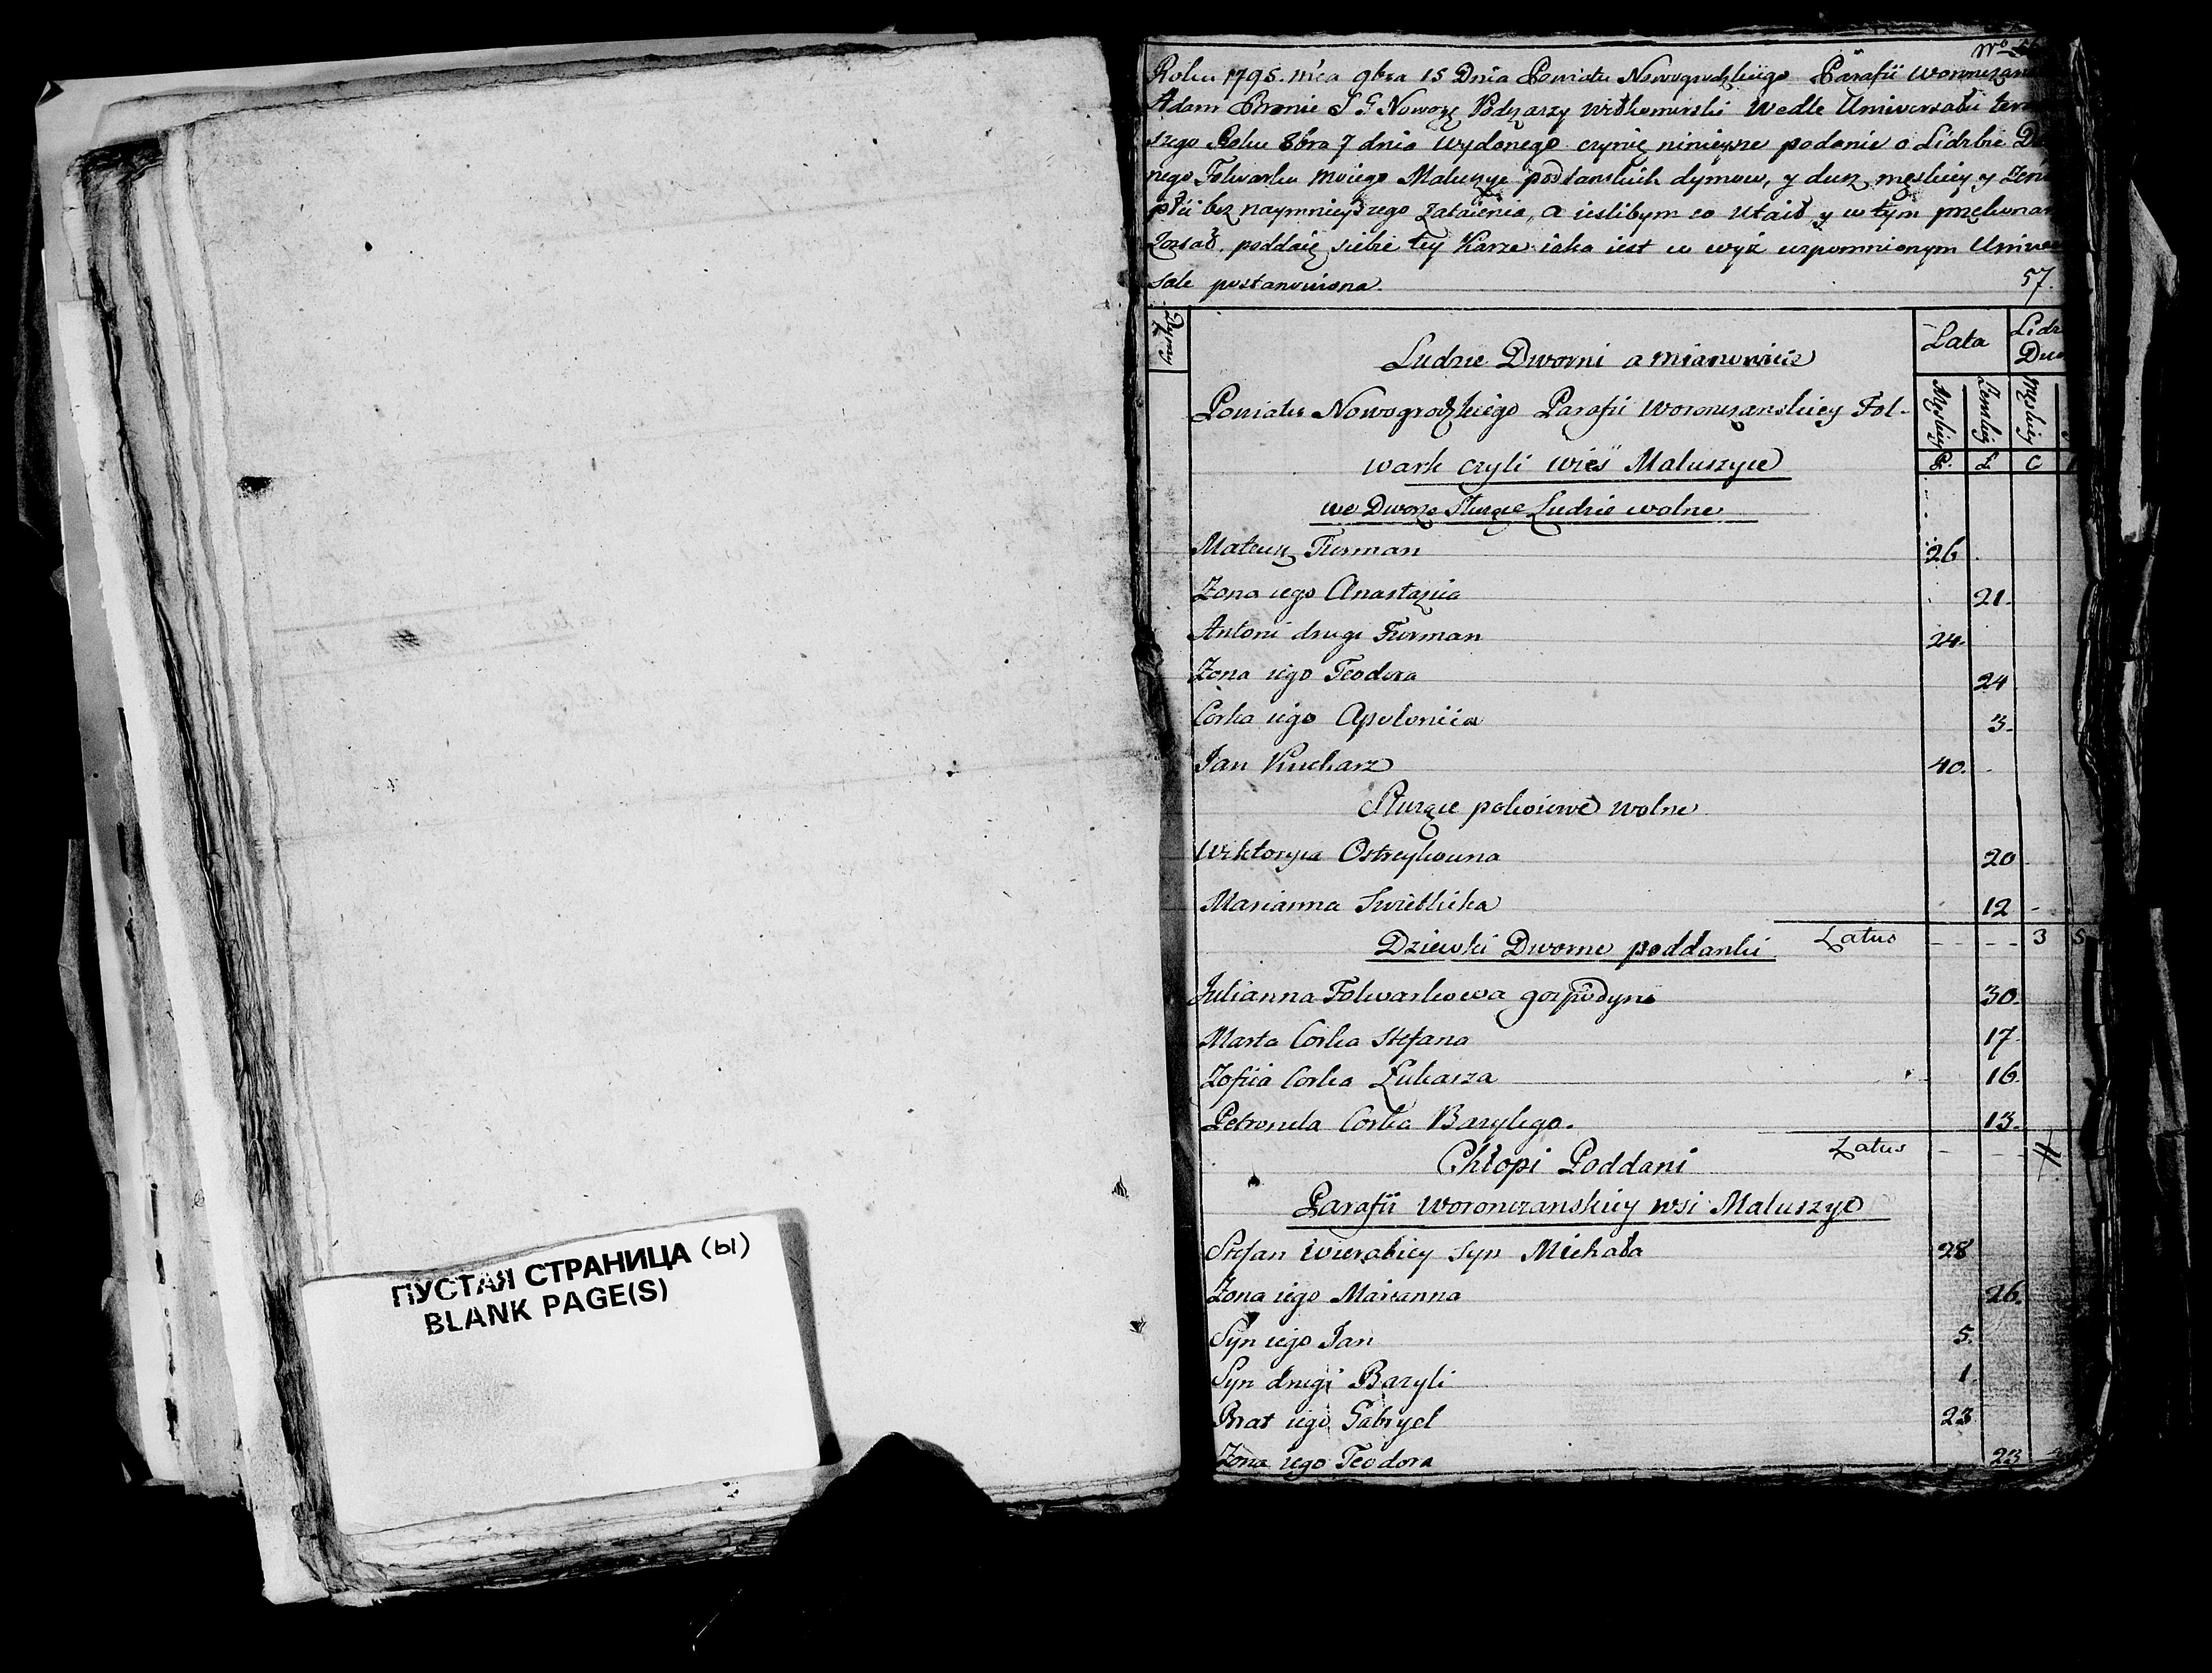 ПУСТАЯ СТРАНИЦА (ы)
BLANK PAGE(S)
No
Roku 1795. mca 9bra 15 Dnia Powiatu Nowogrodzkiego Parafii
Adam Bronic S G Nowogr Podczaszy Wiłkomirski Wedle Uniwersału
szego Roku 8bra 7 dnia wydanego czynię podanie o Lidzbie
nego Folwarku moiego Maluszyc poddanskich dymow, y dusz męskiey y
płci bez naymnieyszego zataienia, a ieslibym co utaił y w tym
Został poddaię siebie tey Karze iaka iest w wyż wspomnionym
sale postanowiona.
57.
Dymy
Ludzie Dworni a mianowicie
Lata
Powiatu Nowogrodzkiego Parafii Woronczanskiey Fol-
Męskiey
Żenskiey
Męskiey
wark czyli wieś Maluszyce
L. L C
we Dworze Służące Ludzie wolne
Mateusz Furman 26
Zona iego Anastazia 21.
Antoni drugi Furman 24.
Zona iego Teodora 24
Corka iego Apoloniia 3.
Jan Kucharz 40.
Służące pokoiewe wolne
Wiktorya Ostreykowna 20
Marianna Swietlicka 12
Latus 3 5
Dziewki Dworne poddanki
Julianna Folwarkowa gospodyni 30.
Marta Corka Stefana 17.
Zofiia Corka Łukasza 16.
Petronela Corka Bazylego. 13.
Latus
Chłopi Poddani
Parafii Woronczanskiey wsi Maluszyc
Stefan Wierabiey syn Michała 28
Zona iego Marianna 26.
Syn iego Jan 5.
Syn drugi Bazyli 1
Brat iego Gabryel 23
Zona iego Teodora 23